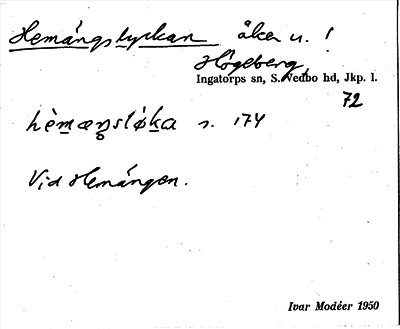 Hemängslyckan åker u. !
Högeberg,
Ingatorps sn, S. Vedbo hd, Jkp. l.
72
hèmæŋsløka s. 174
Vid Hemängen.
Ivar Modéer 1950